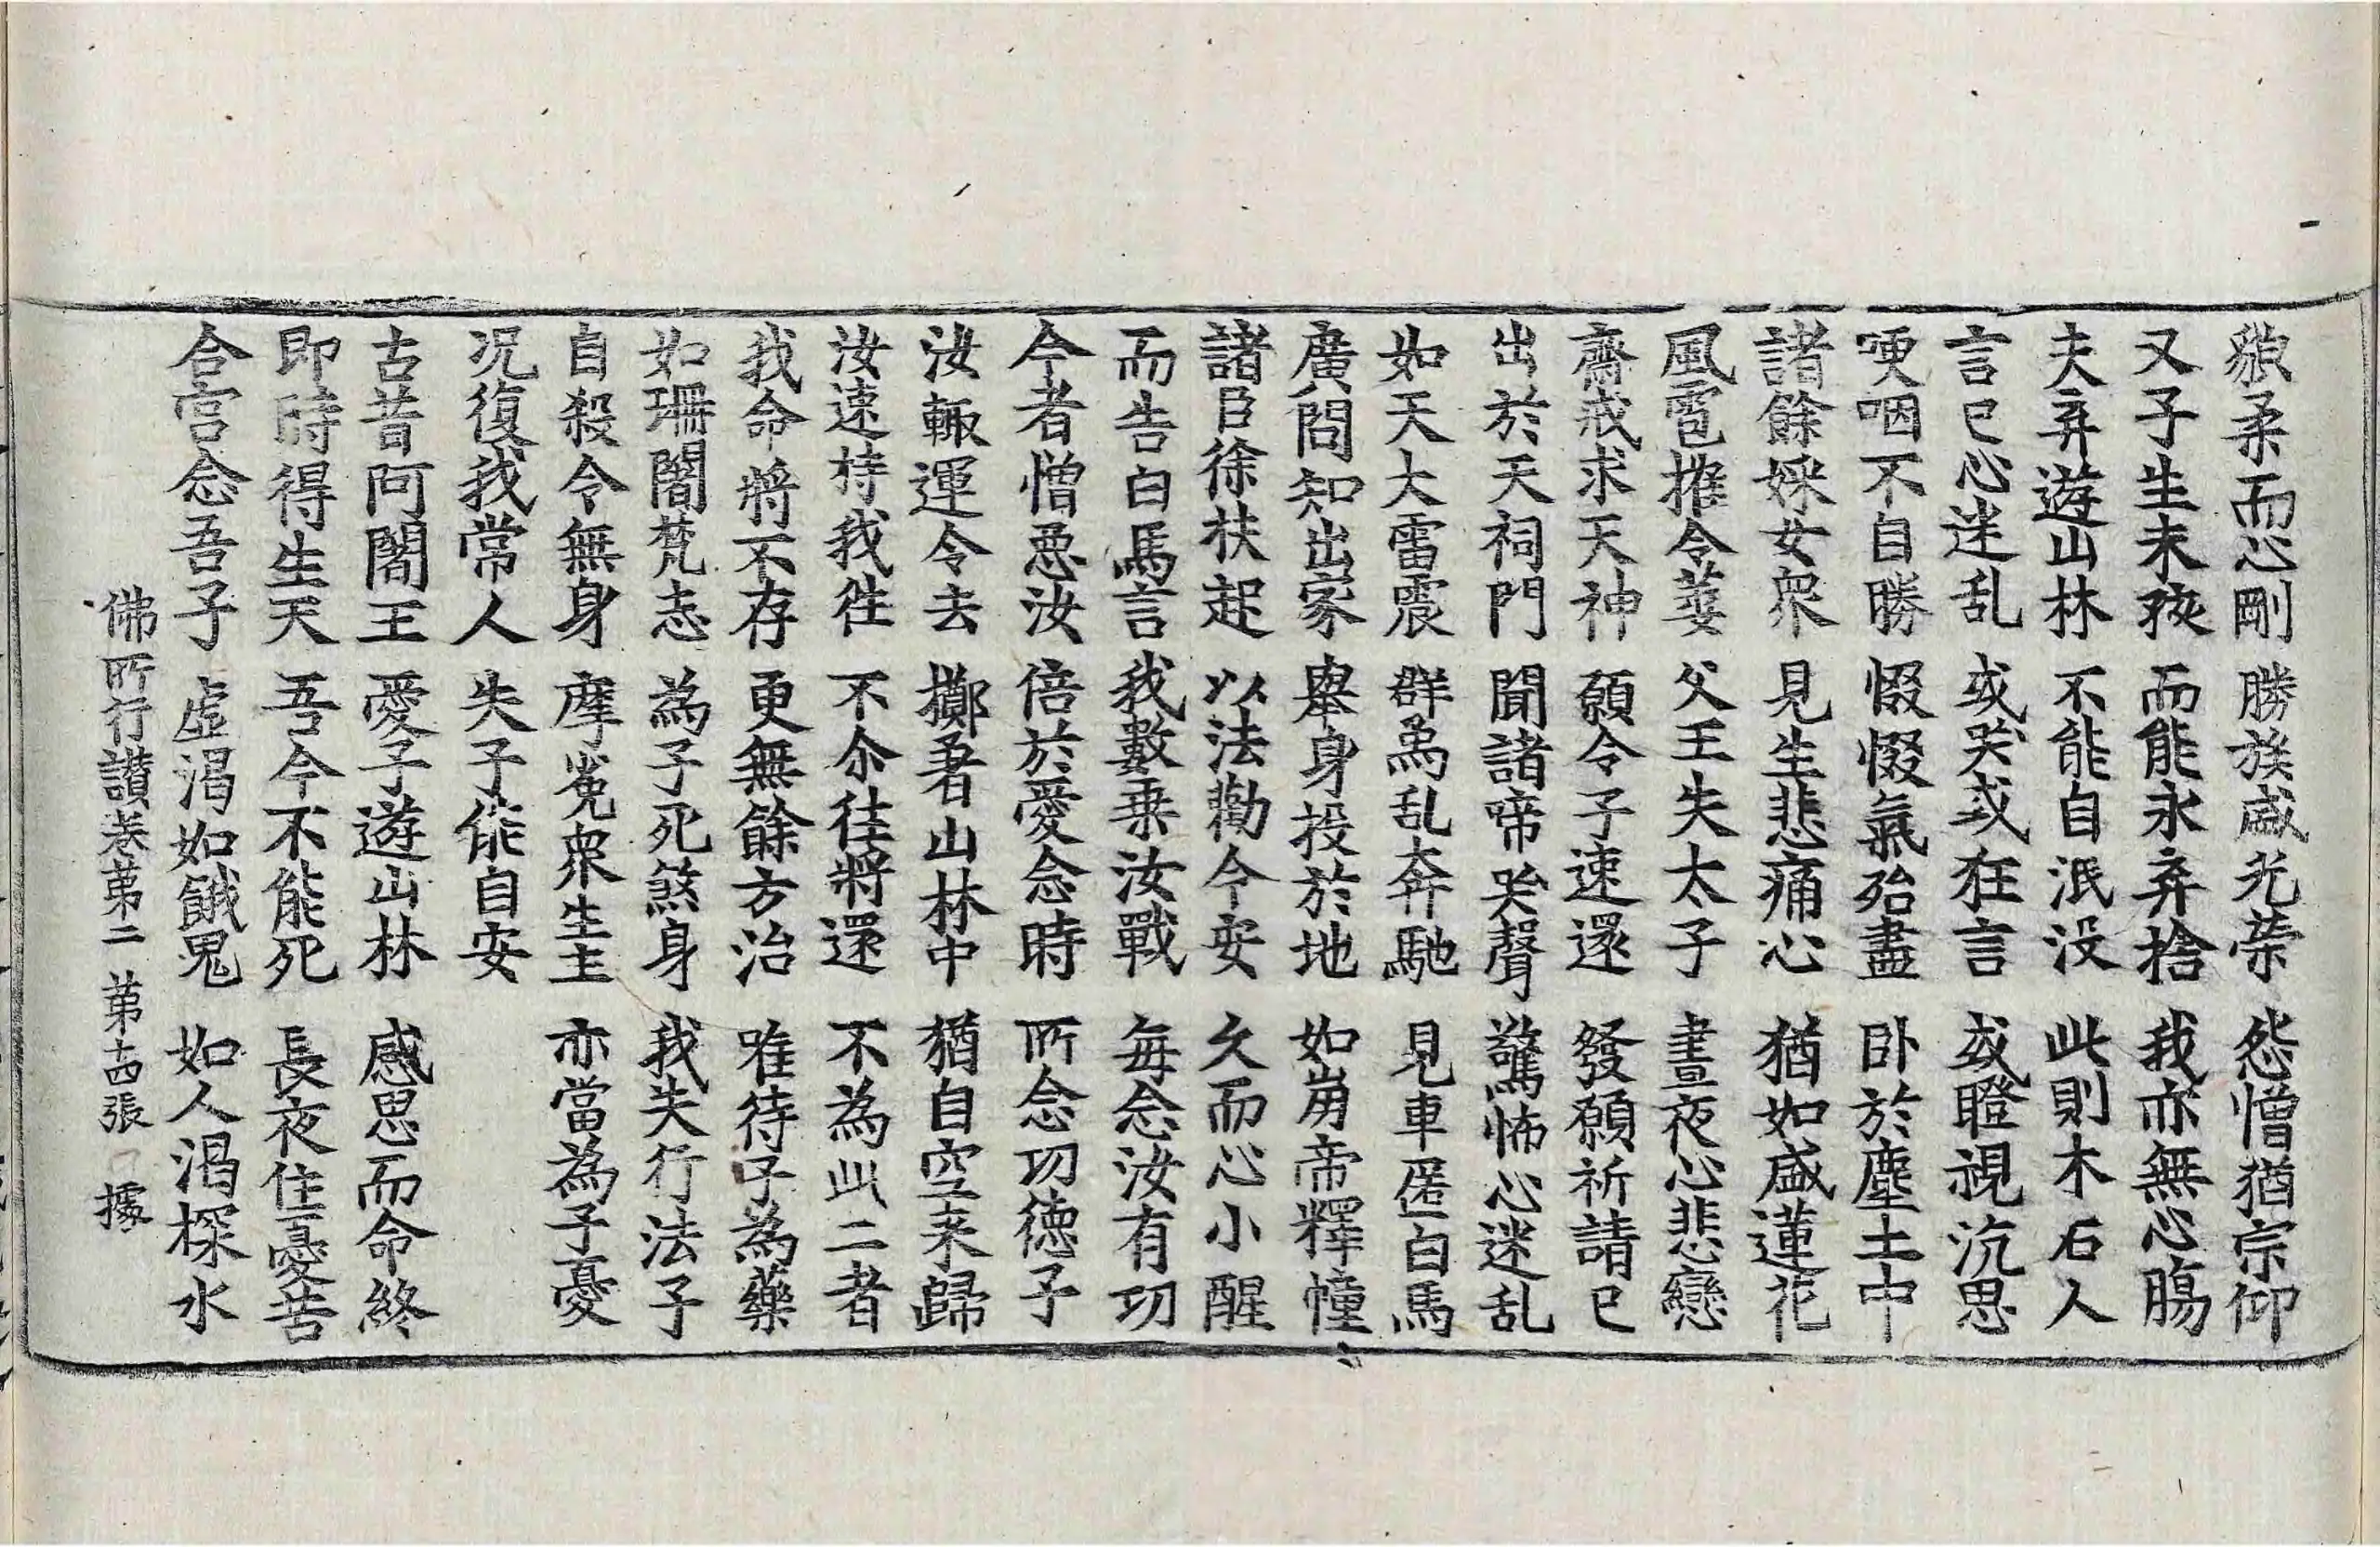 貌柔而心剛 勝族盛光榮 怨憎猶宗仰
又子生未孩 而能永弃捨 我亦無心膓
夫弃遊山林 不能自泯没 此則木石人
言已心迷乱 或哭或狂言 或瞪視沉思
哽咽不自勝 惙惙氣殆盡 卧於塵土中
諸餘婇女衆 見生悲痛心 猶如盛蓮花
風雹摧令萎 父王失太子 晝夜心悲戀
齋戒求天神 願令子速還 發願祈請已
出於天祠門 聞諸啼哭聲 驚怖心迷乱
如天大雷震 群爲乱奔馳 見車匿白馬
廣問知出家 舉身投於地 如崩帝釋幢
諸臣徐扶起 以法勸令安 久而心小醒
而告白馬言 我數乗汝戰 每念汝有功
今者憎惡汝 倍於愛念時 所念功德子
汝輙運令去 擲著山林中 猶自空来歸
汝速持我往 不尒往將還 不為此二者
我命將不存 更無餘方治 唯待子為藥
如珊闍梵志 為子死煞身 我失行法子
自殺令無身 摩㝹衆生主 亦當為子憂
况復我常人 失子能自安
古昔阿闍王 愛子遊山林 感思而命終
即時得生天 吾今不能死 長夜住憂苦
合宫念吾子 虛渴如餓鬼 如人渴探水
佛所行讃卷第二 第十四張 據